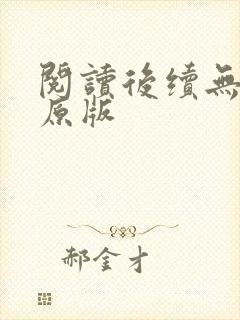 閱讀後續無
原版
郝金才